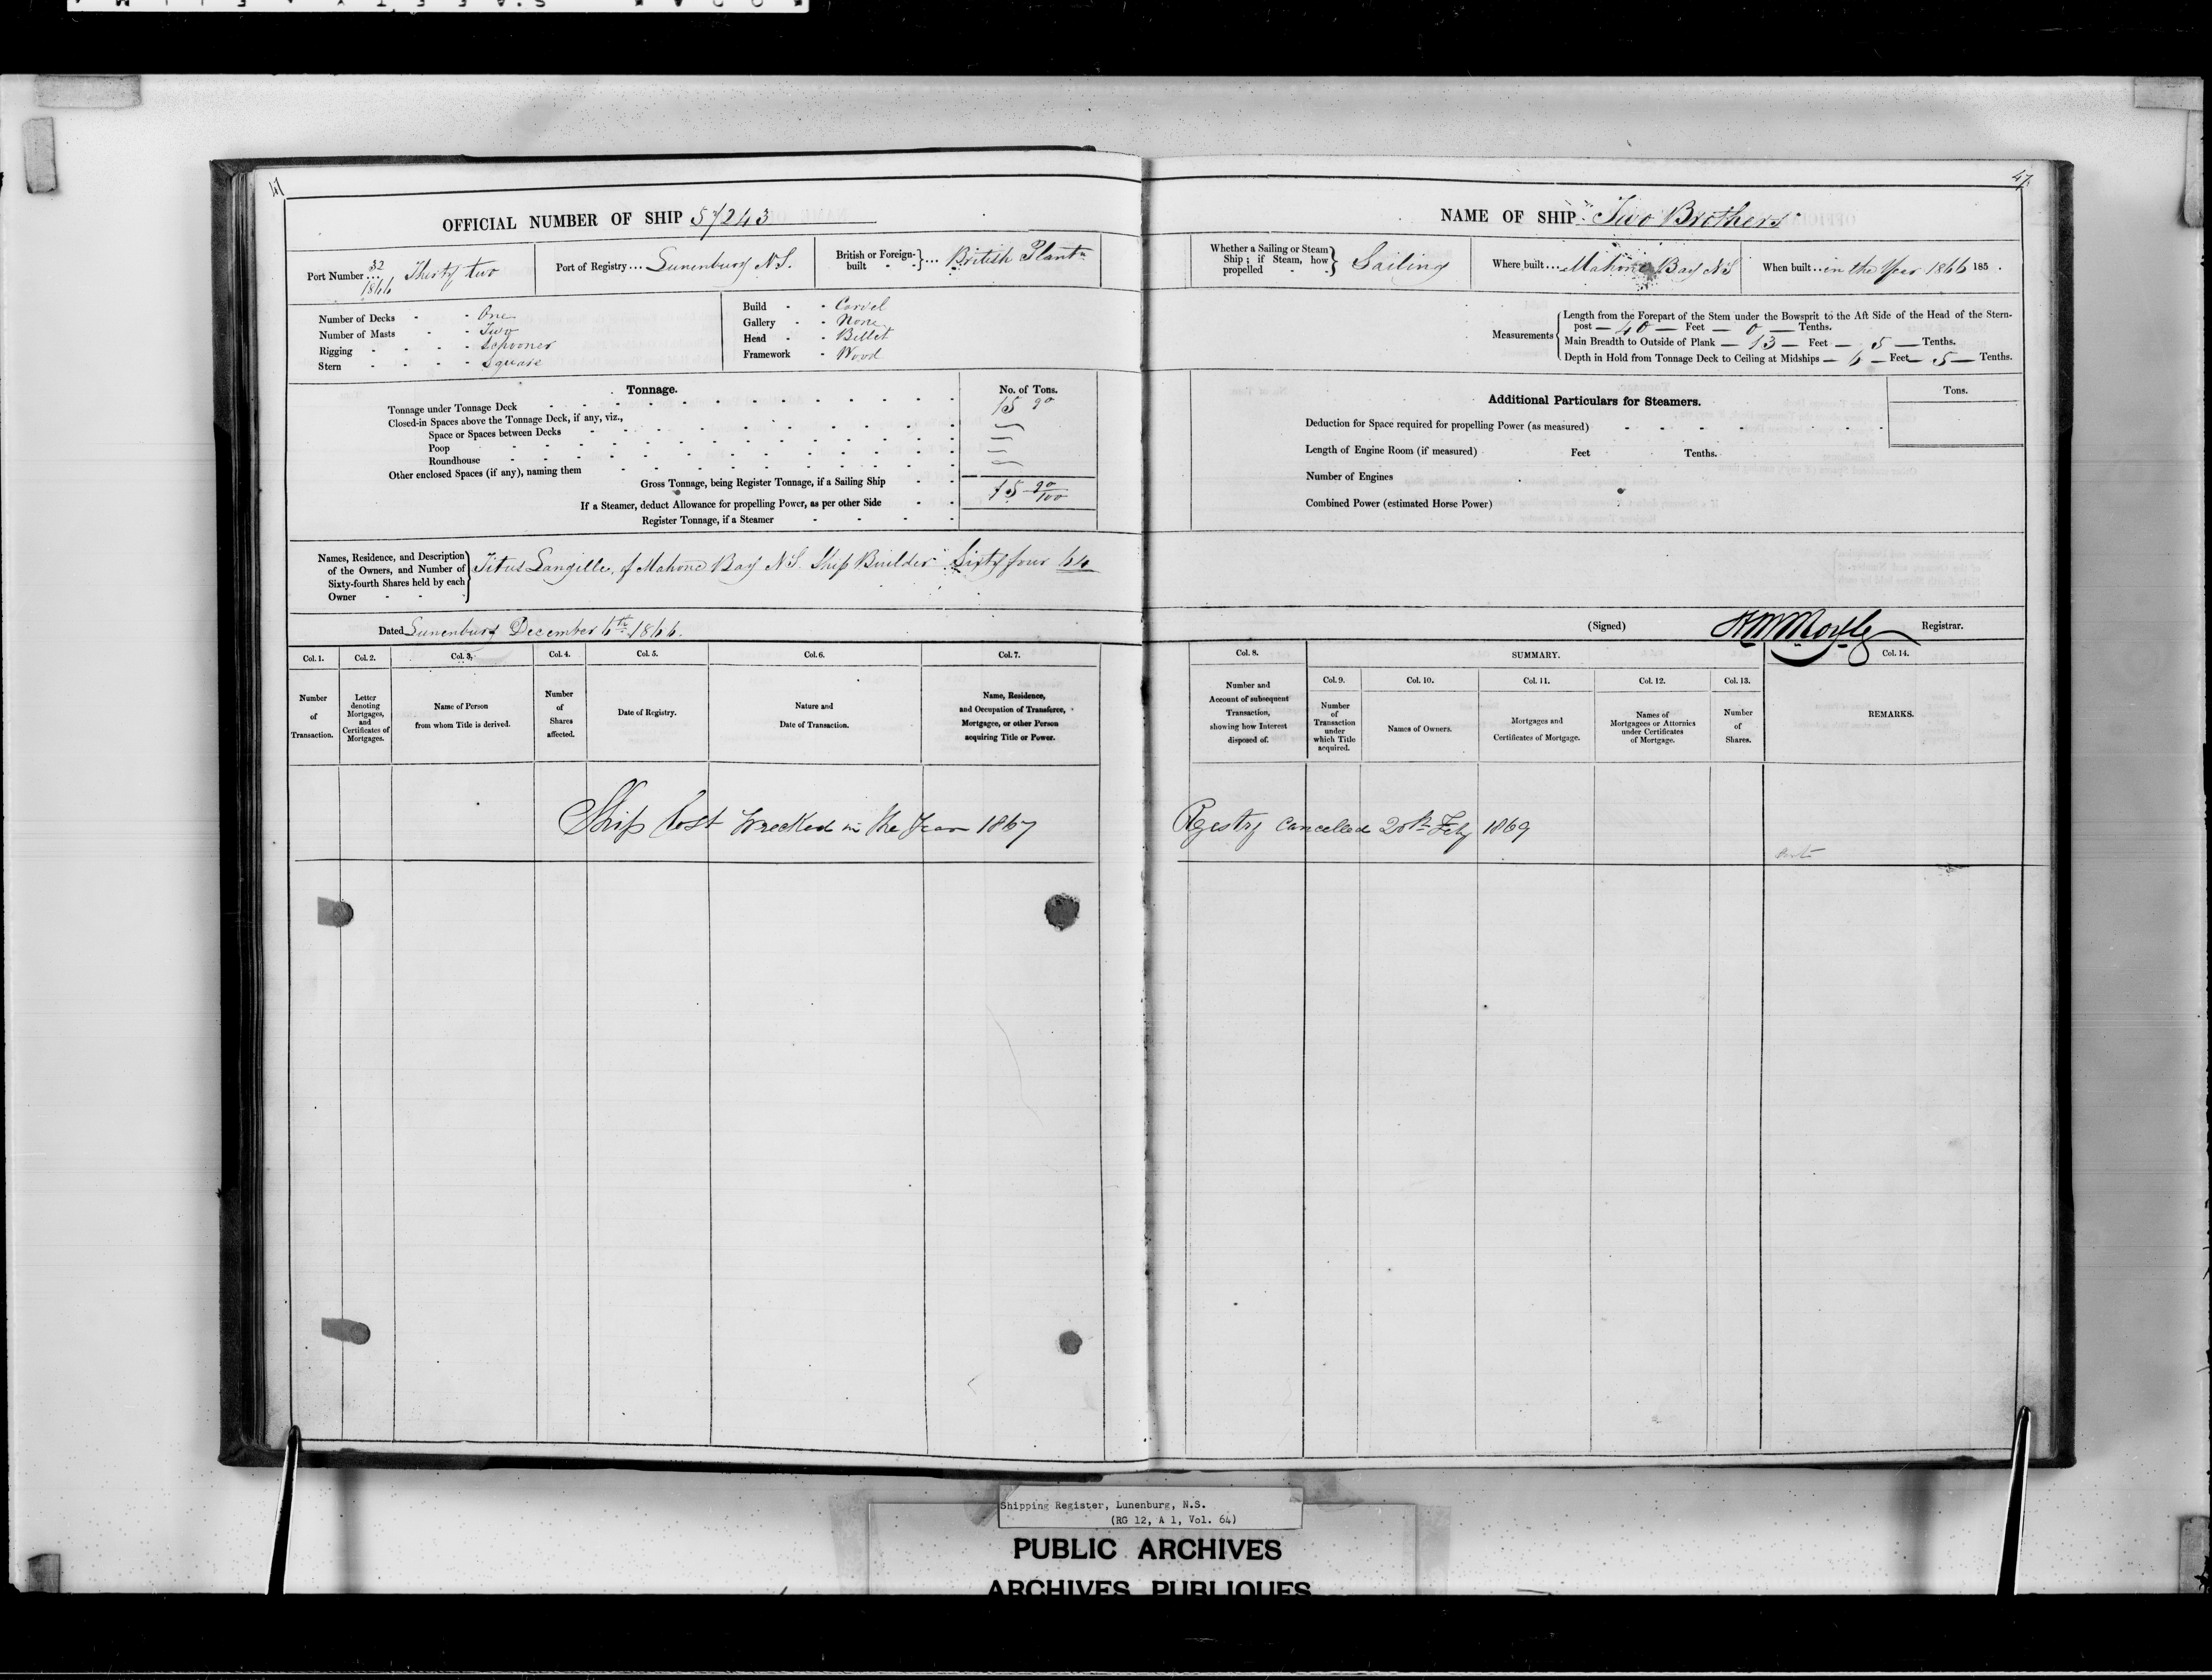 47
OFFICIAL NUMBER OF SHIP 57243
Port Number ... 32/1866 Thirty two
Port of Registry ... Lunenburg N.S.
British or Foreign-built } ... British Plantn
Number of Decks - - One
Number of Masts - - Two
Rigging - - - - Schooner
Stern - - - - Square
Build - - Carvel
Gallery - - None
Head - - Billet
Framework - Wood
Tonnage.
No. of Tons.
Tonnage under Tonnage Deck 15 90
Closed-in Spaces above the Tonnage Deck, if any, viz.,
Space or Spaces between Decks
Poop
Roundhouse
Other enclosed Spaces (if any), naming them
Gross Tonnage, being Register Tonnage, if a Sailing Ship 15 90/100
If a Steamer, deduct Allowance for propelling Power, as per other Side
Register Tonnage, if a Steamer
Names, Residence, and Description of the Owners, and Number of Sixty-fourth Shares held by each Owner } Titus Langille, of Mahone Bay N.S. Ship Builder Sixty four 64
Dated Lunenburg December 6th 1866.
Col. 1. Col. 2. Col. 3. Col. 4. Col. 5. Col. 6. Col. 7.
Number of Transaction.
Letter denoting Mortgages, and Certificates of Mortgages.
Name of Person from whom Title is derived.
Number of Shares affected.
Date of Registry.
Nature and Date of Transaction.
Name, Residence, and Occupation of Transferee, Mortgagee, or other Person acquiring Title or Power.
Ship lost Wrecked in the Year 1867
47
NAME OF SHIP "Two Brothers"
Whether a Sailing or Steam Ship; if Steam, how propelled } Sailing
Where built ... Mahone Bay N.S
When built ... in the Year 1866 185 .
Measurements { Length from the Forepart of the Stem under the Bowsprit to the Aft Side of the Head of the Stern-
post — 40 — Feet — 0 — Tenths.
Main Breadth to Outside of Plank — 13 — Feet — 5 — Tenths.
Depth in Hold from Tonnage Deck to Ceiling at Midships — 6 — Feet — 5 — Tenths.
Additional Particulars for Steamers.
Tons.
Deduction for Space required for propelling Power (as measured)
Length of Engine Room (if measured) Feet Tenths.
Number of Engines
Combined Power (estimated Horse Power)
(Signed) Registrar.
Col. 8. SUMMARY. Col. 14.
Col. 9. Col. 10. Col. 11. Col. 12. Col. 13.
Number and Account of subsequent Transaction, showing how Interest disposed of.
Number of Transaction under which Title acquired.
Names of Owners.
Mortgages and Certificates of Mortgage.
Names of Mortgagees or Attornies under Certificates of Mortgage.
Number of Shares.
REMARKS.
Registry Cancelled 20th Feby 1869
Shipping Register, Lunenburg, N.S.
(RG 12, A 1, Vol. 64)
PUBLIC ARCHIVES
ARCHIVES PUBLIQUES